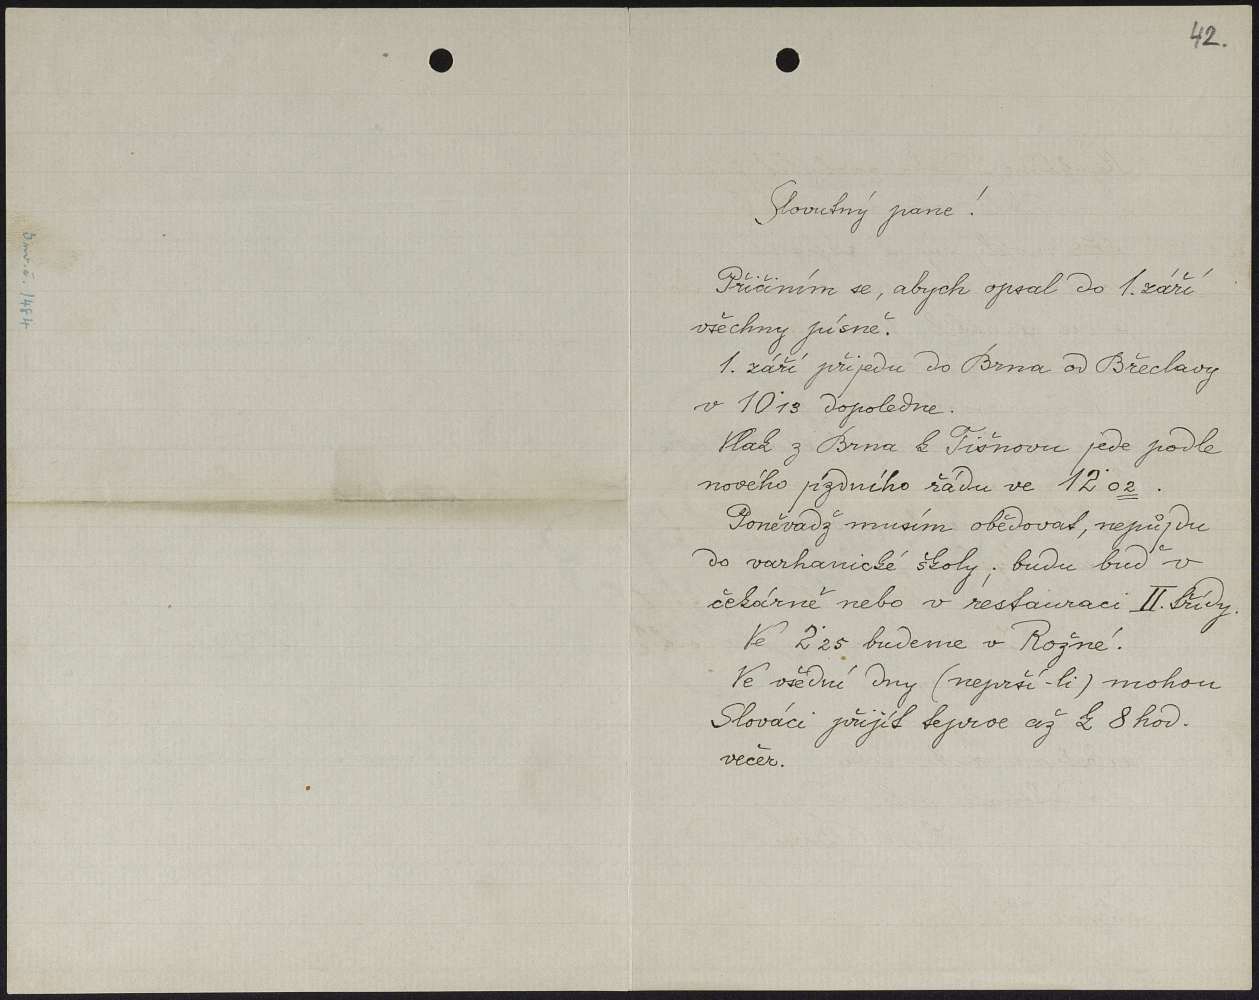 42.
Inv. č. 1484
Slovutný pane!
Přičiním se, abych opsal do 1. září
všechny písně.
1. září přijedu do Brna od Břeclavy
v 10·13 dopoledne.
Vlak z Brna k Tišnovu jede podle
nového jízdního řádu ve 12·02.
Poněvadž musím obědovat, nepůjdu
do varhanické školy; budu buď v
čekárně nebo v restauraci II. třídy.
Ve 2·25 budeme v Rožné.
Ve všední dny (neprší-li) mohou
Slováci přijít teprve až k 8 hod.
večer.